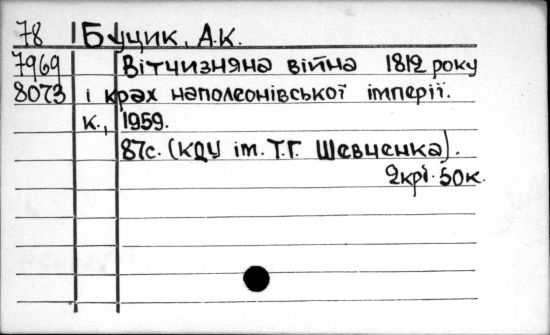 78 Буцик, А.К.
7969 Вітчизняна війна 1812 року
8073 і крах наполеонівської імперії.
К., 1959.
87с. (КДУ ім. Т.Г. Шевченка).
2крб. 50к.